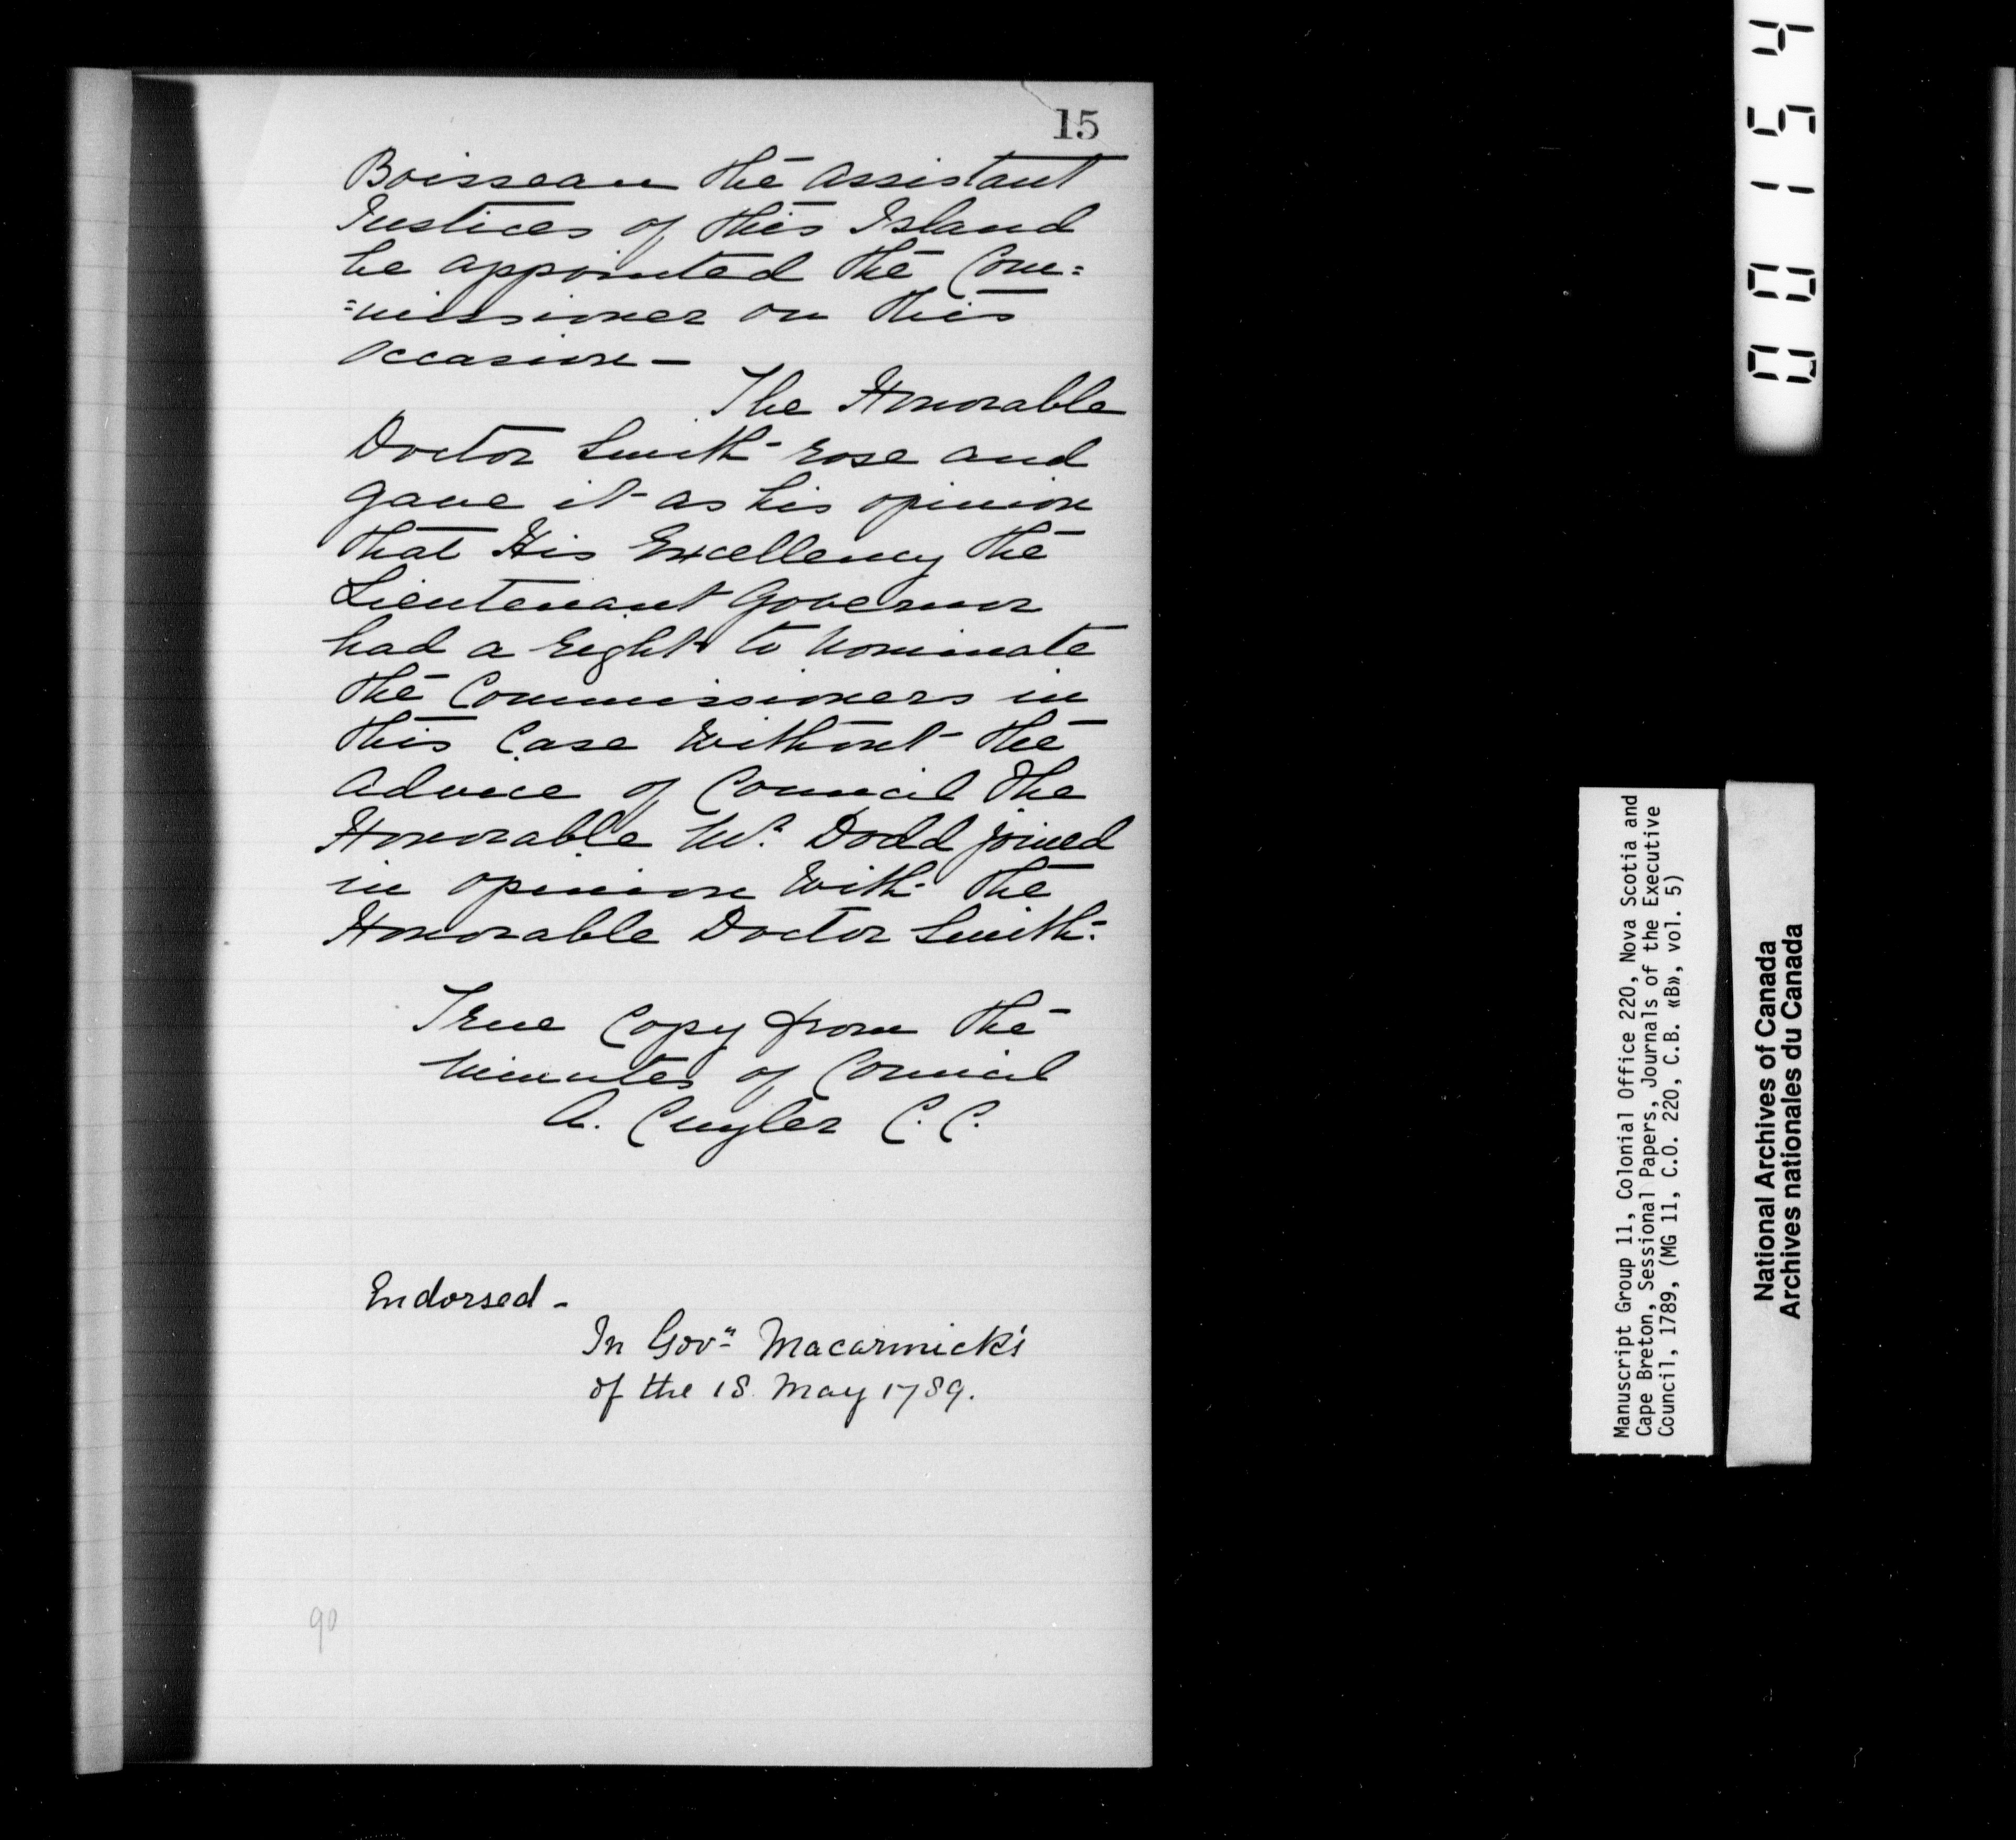 15
Boisseau the Assistant
Justices of this Island
be appointed the Com=
=missioner on this
occasion—
The Honorable
Doctor Smith rose and
gave it as his opinion
that His Excellency the
Lieutenant Governor
had a right to nominate
the Commissioners in
this Case Without the
advice of Council The
Honorable Mr. Dodd joined
in opinion With the
Honorable Doctor Smith.
True Copy from the
Minutes of Council
A. Cuyler C.C.
Endorsed -
In Govr Macarmick's
of the 18 May 1789.
90
00154
Manuscript Group 11, Colonial Office 220, Nova Scotia and
Cape Breton, Sessional Papers, Journals of the Executive
Council, 1789, (MG 11, C.O. 220, C.B. «B», vol. 5)
National Archives of Canada
Archives nationales du Canada